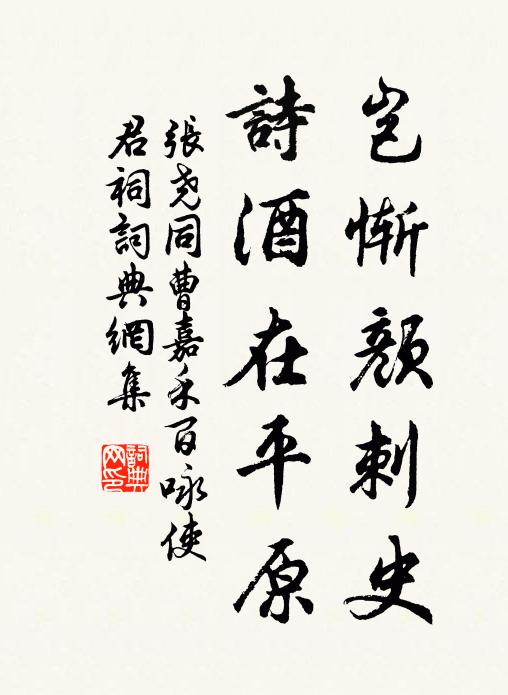 岂惭颜刺史
詩酒在平原
張尧同曹嘉禾百咏使
君祠詞典網集
詞典网印